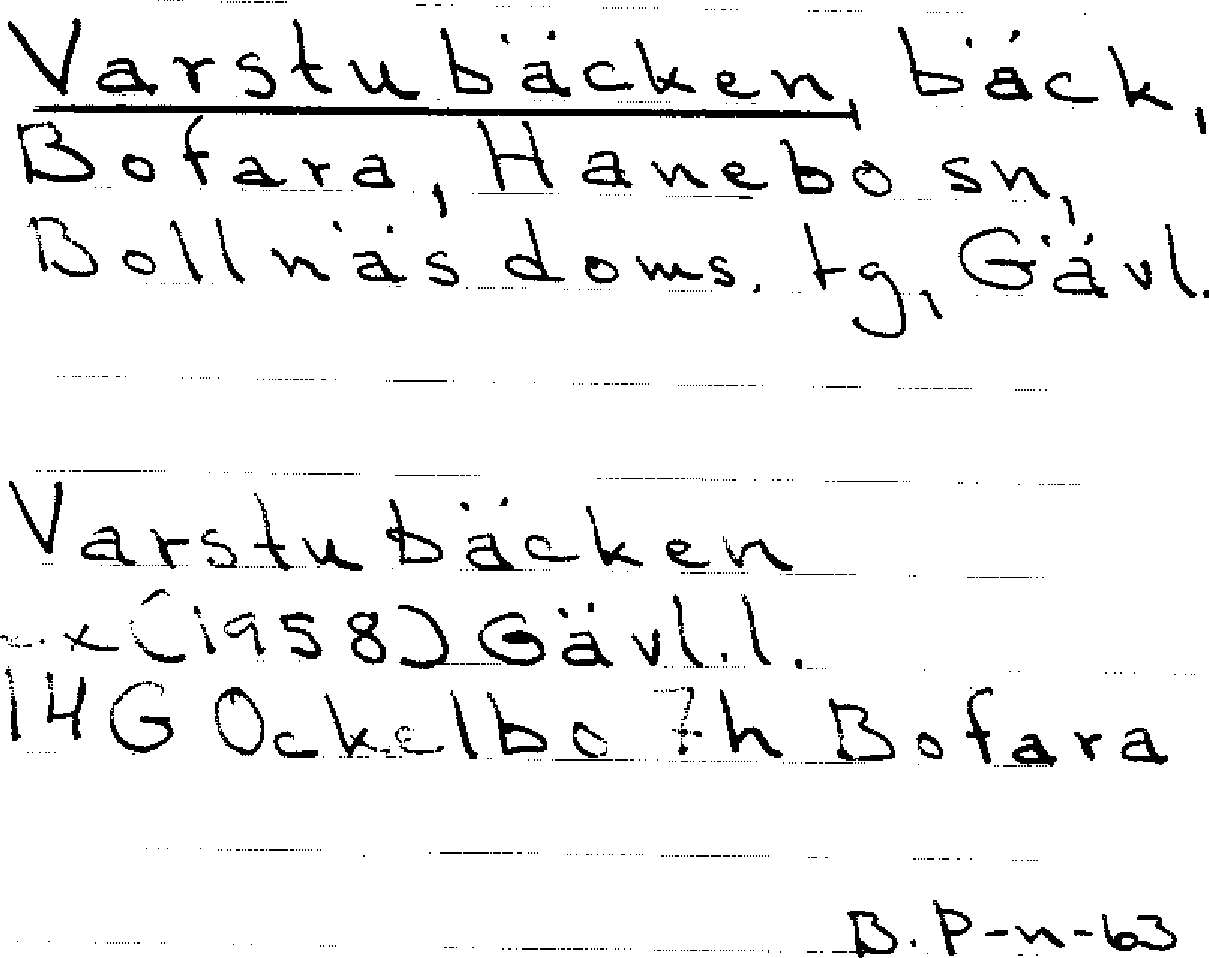 Varstubäcken, bäck,
Bofara, Hanebo sn,
Bollnäs doms. tg, Gävl.
Varstubäcken
(1958) Gävl.l.
14G Ockelbo 7h Bofara
B. P-n-63